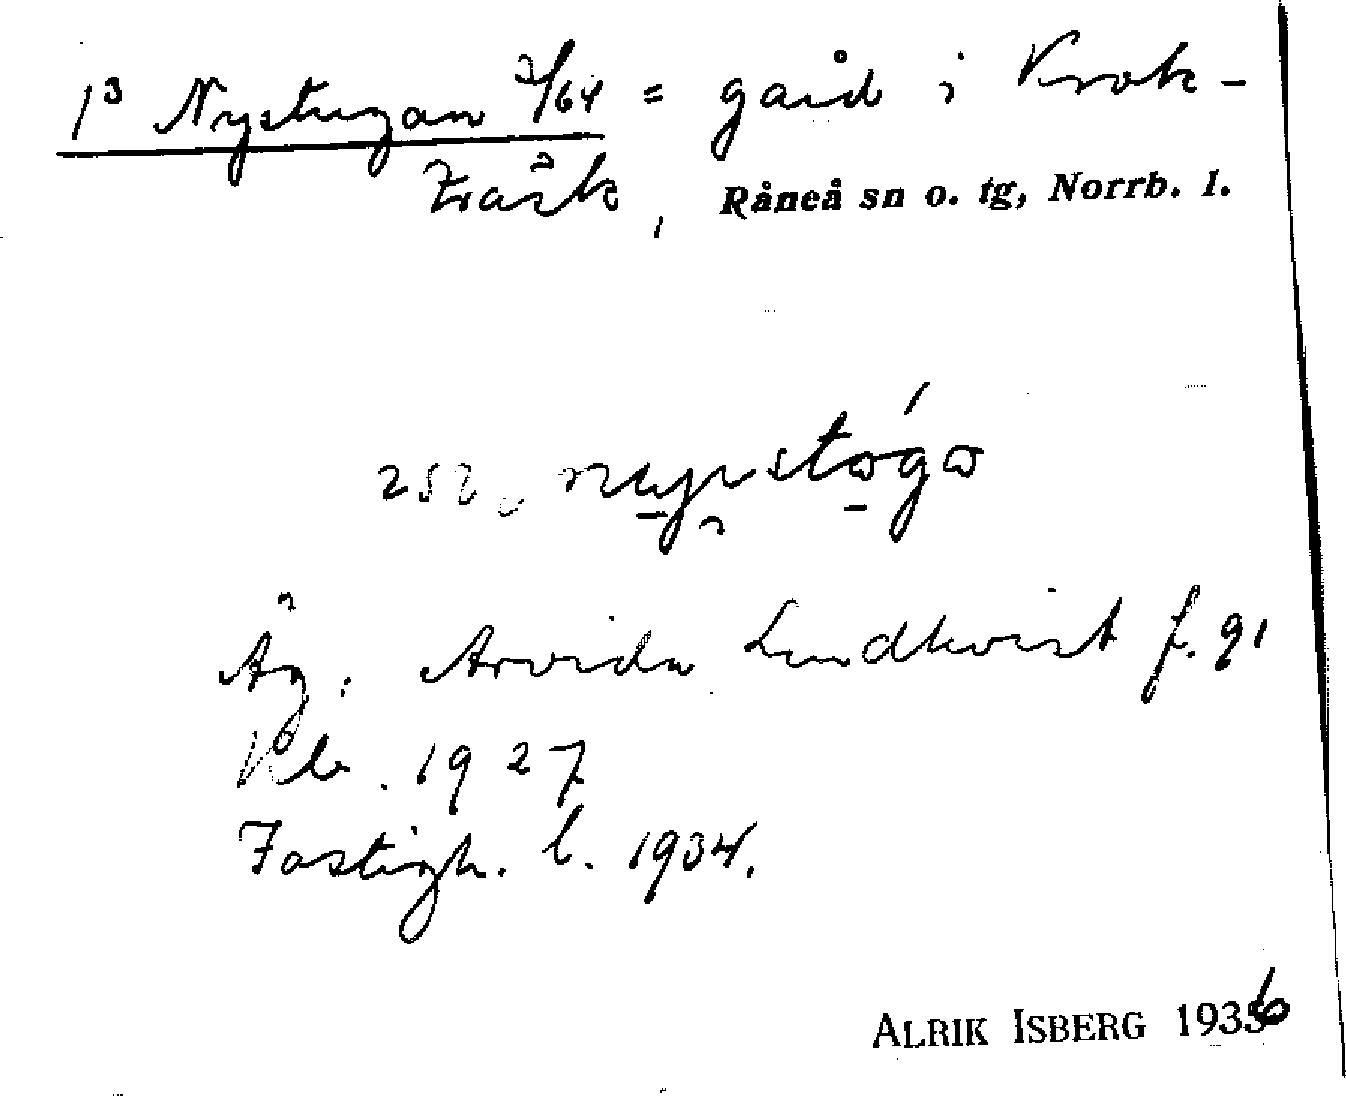 1³ Nystugan 2/64 = gård i Krok-
träsk, Råneå sn o. tg, Norrb. l.
252,
Äg: Arvida Lundkvist f. 91
Vlb. 1927
Fastigh. l. 1934.
ALRIK ISBERG 1936